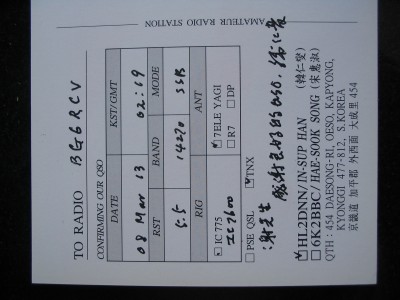 AMATEUR RADIO STATION
TO RADIO BG6RCV
CONFIRMING OUR QSO
DATE KST/GMT
08 Mar 13 02:19
RST BAND MODE
5.5 14270 SSB
RIG ANT
IC 775 7ELE YAGI
IC7600 R7 DP
PSE QSL TNX
谢先生
感谢良好的QSO.
HL2DNN/IN-SUP HAN (韓仁燮)
6K2BBC/HAE-SOOK SONG (宋惠淑)
QTH : 454 DAESONG-RI, OESO, KAPYONG,
KYONGGI 477-812, S.KOREA
京畿道 加平郡 外西面 大成里 454